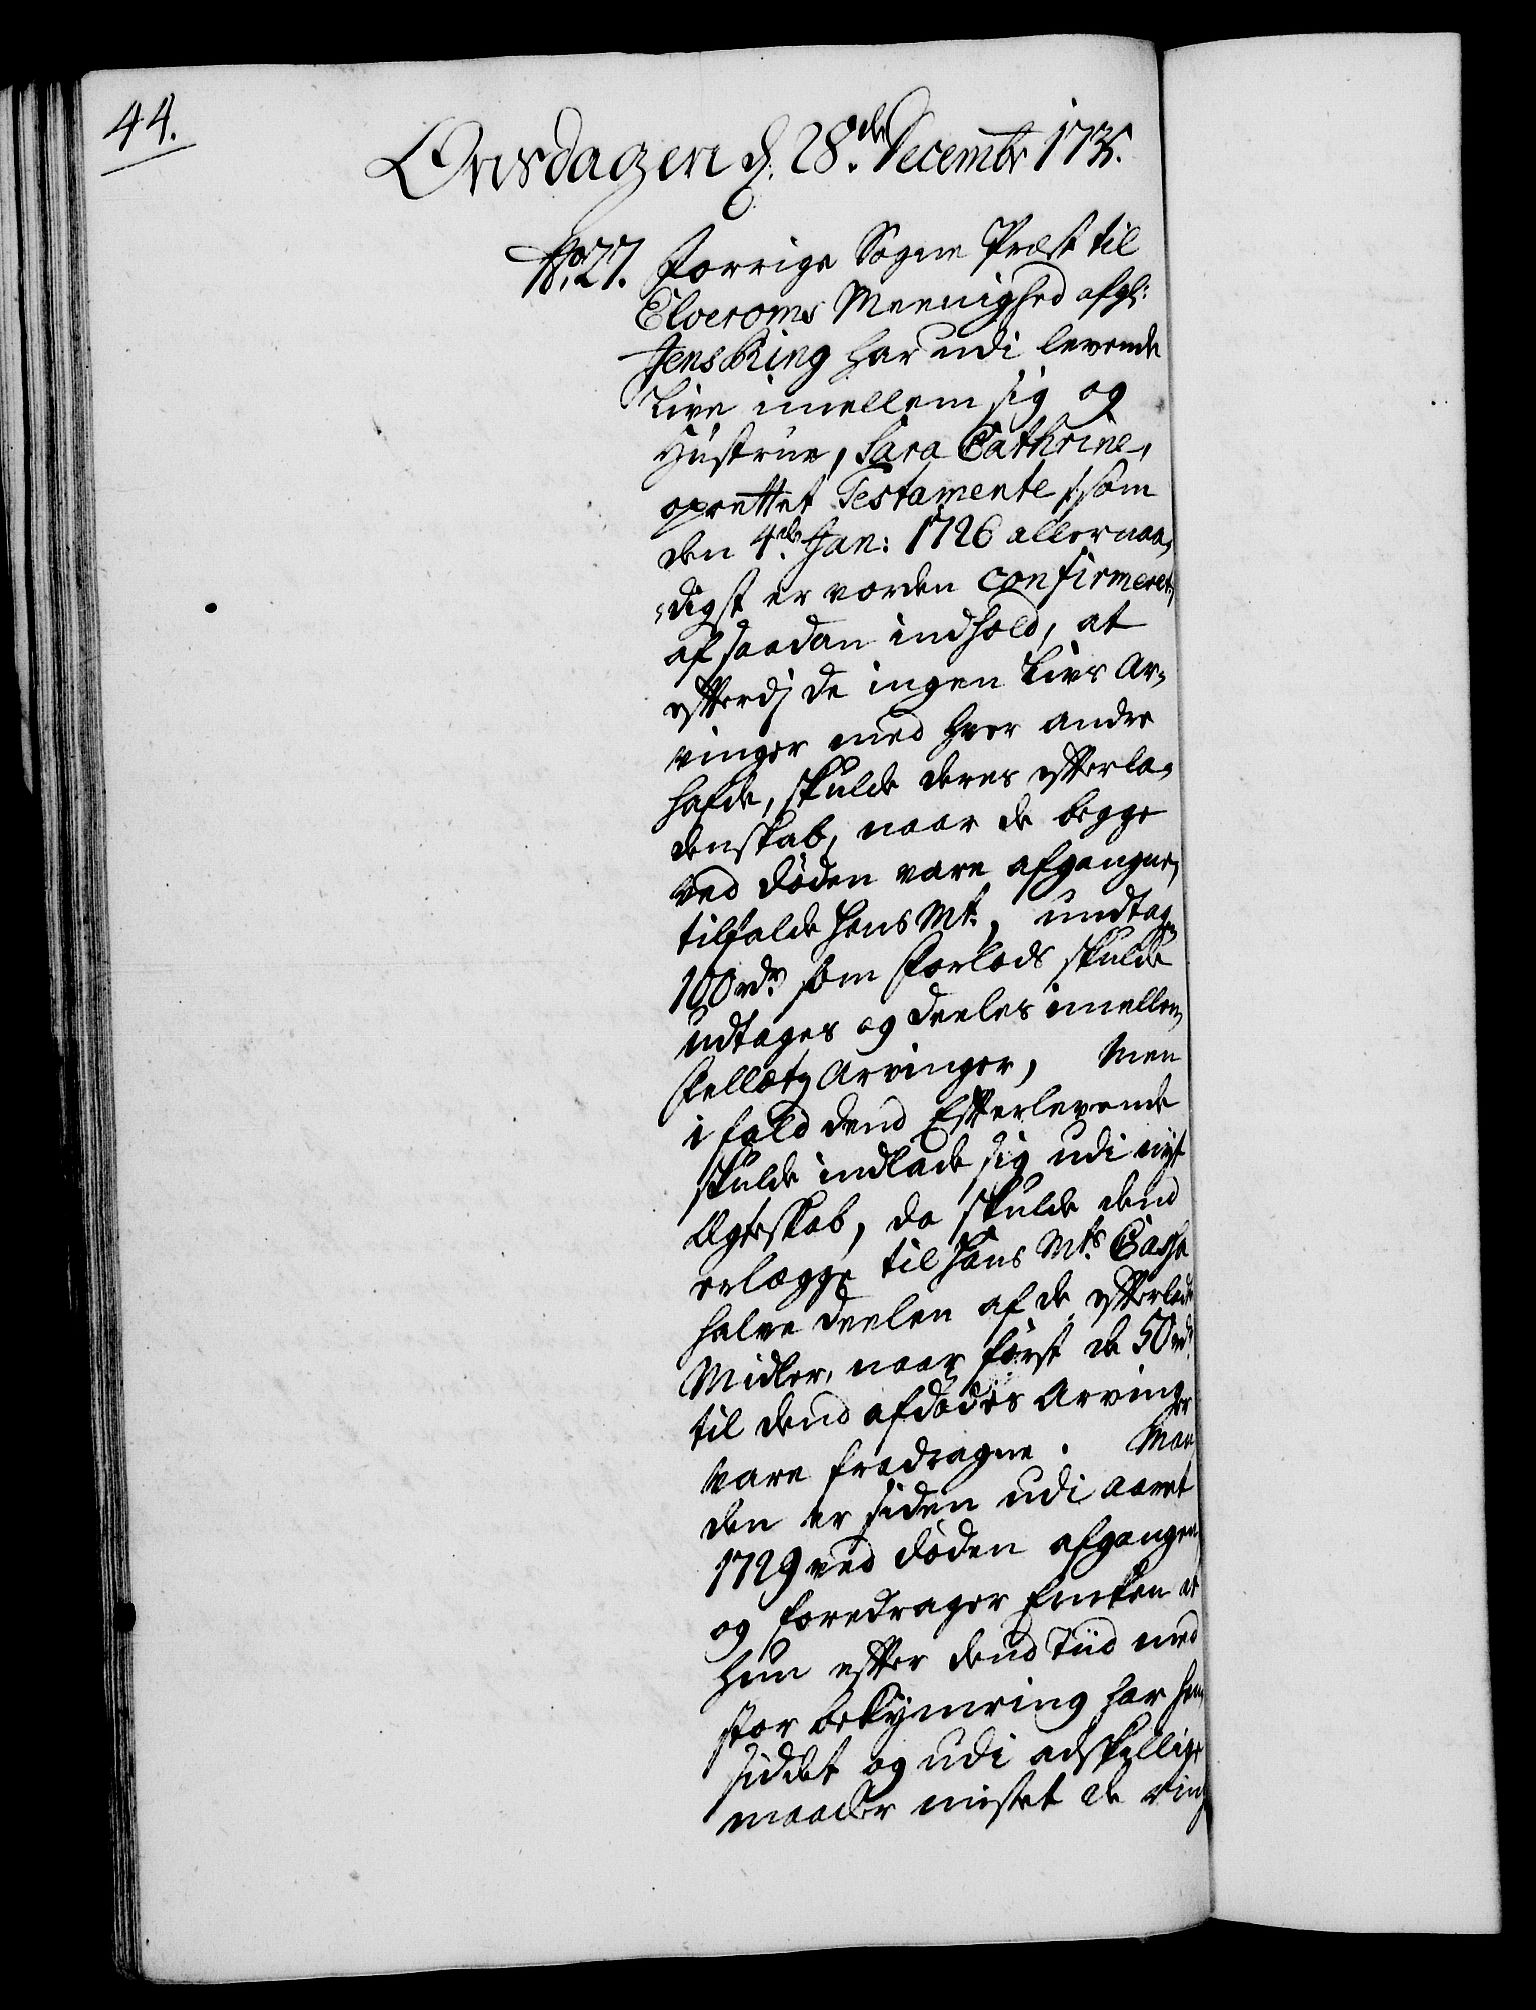 44.
Onsdagen d. 28de Decembr 1735.
No. 27. Forrige Sogne Præst til
Elveroms Meenighed afg:
Jens Ring har udi levende
Live imellem sig og
Hustrue, Sara Cathrine,
oprettet Testamente /:som
den 4de Jan: 1726 allernaa-
digst er vorden confirmeret:/
af saadan indhold, at
efterdj de ingen Livs Ar-
vinger med hver andre
hafde, skulde deres efterla-
denskab, naar de begge
ved døden vare afgangne,
tilfalde Hans Mt., undtag
100 rdr. som Forlods skulde
udtages og deeles imellem
Fellets Arvinger, Men
i fald dend Efterlevende
skulde indlade sig udi nyt
Ægteskab, da skulde dend
erlægge til Hans Mts. Cassa
halve deelen af de efterladte
Midler, naar først de 50 rdr.
til dend afdødes Arvinger
vare fradragne. Man-
den er siden udi aaret
1729 ved døden afgangen,
og foredrager Enken at
hun efter dend Tiid med
stor bekymring har hen-
siddet og udi adskellige
maader mistet de ring